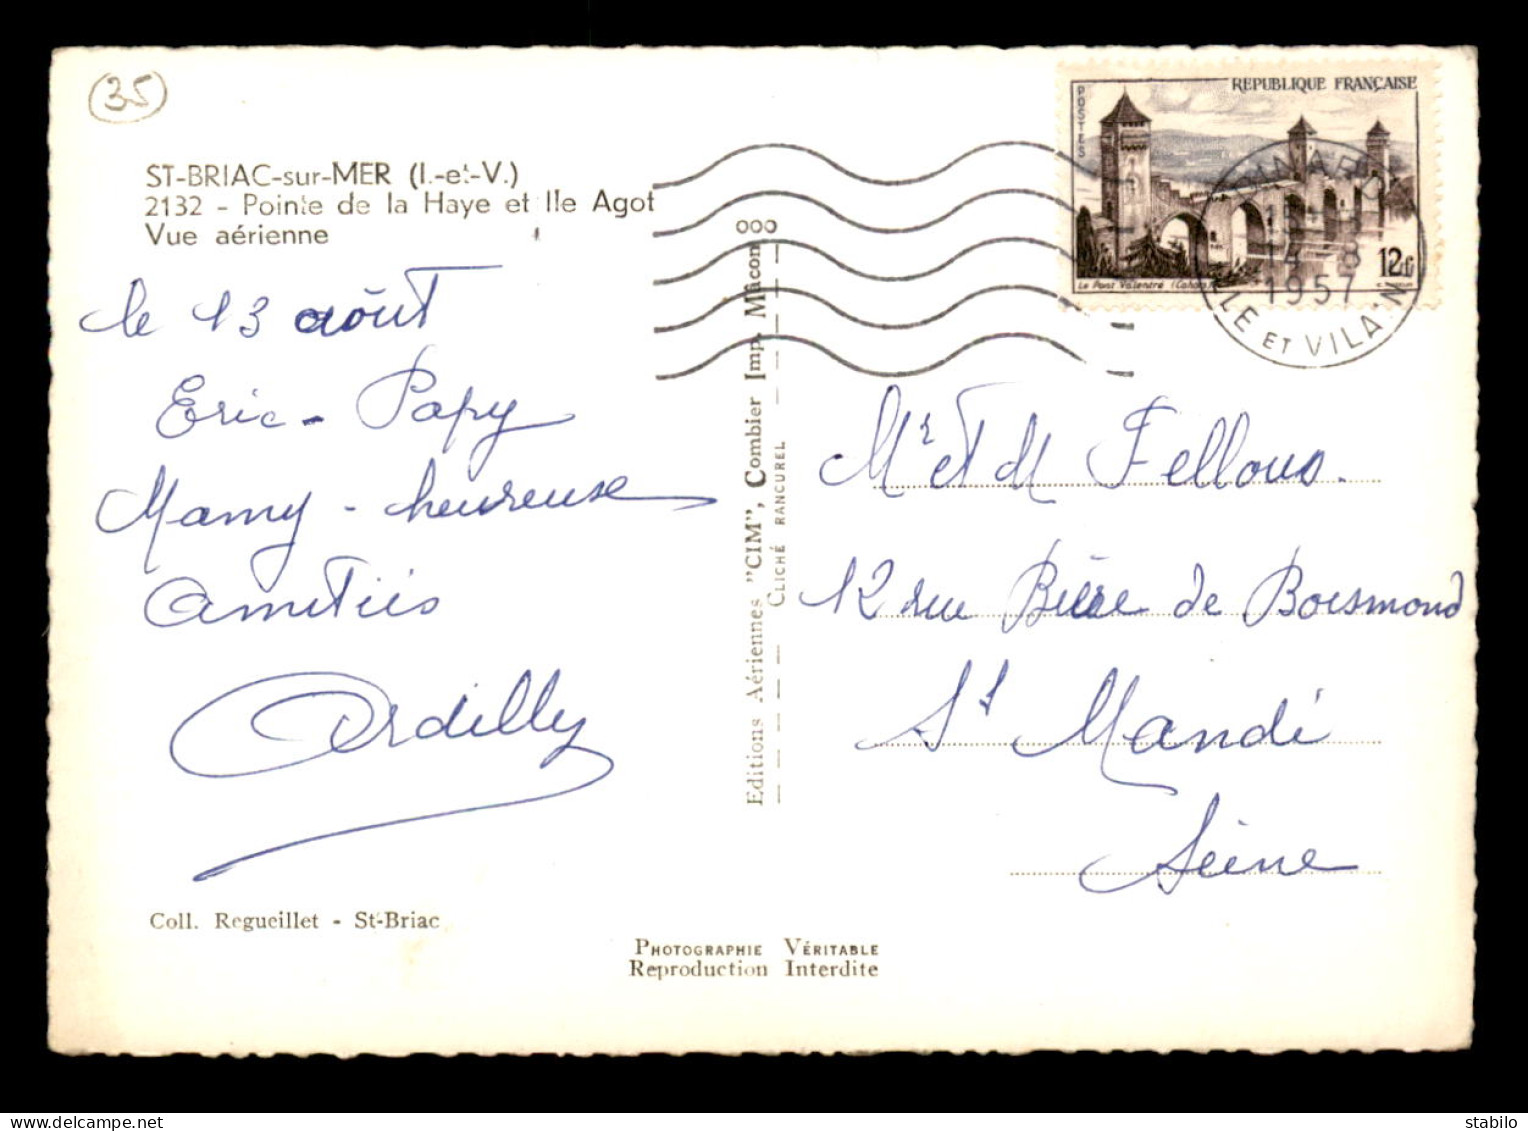 (35)
ST-BRIAC-sur-MER (I.-et-V.)
2132 - Pointe de la Haye et Ile Agot
Vue aérienne
le 13 août
Eric - Papy
Mamy - heureuse
Amitiés
Ardilly
Coll. Regueillet - St-Briac
PHOTOGRAPHIE VÉRITABLE
Reproduction Interdite
Editions Aériennes "CIM", Combier Imp. Mâcon
CLICHÉ RANCUREL
REPUBLIQUE FRANÇAISE
POSTES
Le Pont Valentré (Cahors)
12f
14 - 8
1957
ILLE ET VILAINE
Mr et M Fellous.
12 rue de Boismond
St Mandé
Seine
stabilo